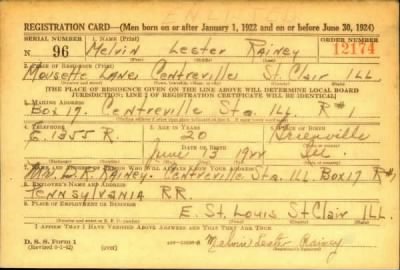 REGISTRATION CARD—(Men born on or after January 1, 1922 and on or before June 30, 1924)
SERIAL NUMBER 1. NAME (Print) ORDER NUMBER
N 96 Melvin Lester Rainey 12174
2. PLACE OF RESIDENCE (Print)
Mousette Lane Centreville St. Clair ILL
[THE PLACE OF RESIDENCE GIVEN ON THE LINE ABOVE WILL DETERMINE LOCAL BOARD
JURISDICTION; LINE 2 OF REGISTRATION CERTIFICATE WILL BE IDENTICAL]
3. MAILING ADDRESS
Box 17. Centreville Sta. ILL. R#1
4. TELEPHONE 5. AGE IN YEARS 6. PLACE OF BIRTH
E. 1355 R 20 Greenville
June 13 1922 Ill
7. NAME AND ADDRESS OF PERSON WHO WILL ALWAYS KNOW YOUR ADDRESS
Centreville Sta. ILL Box 17 R#1
8. EMPLOYER'S NAME AND ADDRESS
PENNSYLVANIA RR.
9. PLACE OF EMPLOYMENT OR BUSINESS
E. St. Louis St Clair ILL.
I AFFIRM THAT I HAVE VERIFIED ABOVE ANSWERS AND THAT THEY ARE TRUE.
D. S. S. Form 1
(over) Melvin Lester Rainey